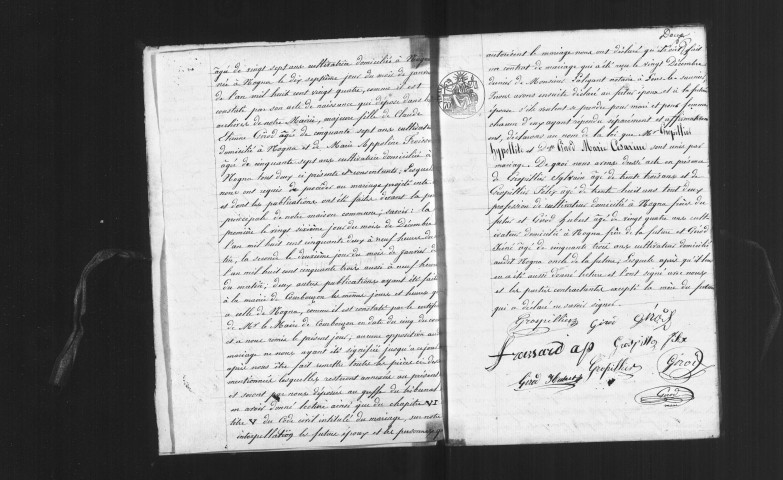 âgé de vingt sept ans cultivatrice domiciliée à Nogna
née à Nogna le dix septième jour du mois de janvier
de l'an mil huit cent vingt quatre, comme il est
constaté par son acte de naissance qui déposé dans les
archives de notre Mairie, majeure fille de Claude
Girod âgé de cinquante sept ans cultivateur
domicilié à Nogna et de Marie Appoline
âgée de cinquante sept ans cultivatrice domiciliée à
Nogna tous deux ici présents et consentants; Lesquels
nous ont requis de procéder au mariage projeté entre
et dont les publications ont été faites devant la porte
principale de notre maison commune; savoir: la
première le vingt sixième jour du mois de Décembre
l'an mil huit cent cinquante deux à neuf heures du
tin, la seconde le deuxième jour du mois de janvier de
l'an mil huit cent cinquante trois aussi à neuf heures
du matin; deux autres publications ayant été faites
à la mairie de les mêmes jours et heures qu'
à celle de Nogna, comme il est constaté par le certificat
de Mr le Maire de en date du cinq du courant
et à nous remis le présent jour; aucune opposition au
mariage ne nous ayant été signifiée jusqu'à ce jour
après nous être fait remettre toutes les pièces ci-dessus
mentionnées lesquelles resteront annexées au présent
et seront par nous déposées au greffe du tribunal
en avoir donné lecture ainsi que du chapitre VI
titre V du Code civil intitulé du mariage, sur notre
interpellation les futurs époux et les personnes qui
autorisent le mariage nous ont déclaré qu'il a été fait
un contrat de mariage qui a été reçu le vingt Décembre
dernier de Monsieur notaire à Lons le saunier,
Nous avons ensuite déclaré au futur époux et à la future
épouse s'ils veulent se prendre pour mari et pour femme,
chacun d'eux ayant répondu séparément et affirmativement
ent, déclarons au nom de la loi que Mr Grospillier
hypolite et Girod Marie Césarine sont unis par
mariage. De quoi nous avons dressé acte en présence
de Grospillier âgé de trente trois ans et de
Grospillier Félix âgé de trente huit ans tous deux
profession de cultivateurs domiciliés à Nogna, frères du
futur et Girod Hubert âgé de vingt quatre ans culti
vateur domicilié à Nogna frère de la future et Girod
âgé de cinquante trois ans cultivateur domicilié
audit Nogna oncle de la future; lesquels après qu'il leur
en a été aussi donné lecture et l'ont signé avec nous
et les parties contractantes excepté la mère du futur
qui a déclaré ne savoir signer.
Grospillier Girod Girod
Grospillier Félix
Girod Hubert Grospillier Girod
Girod